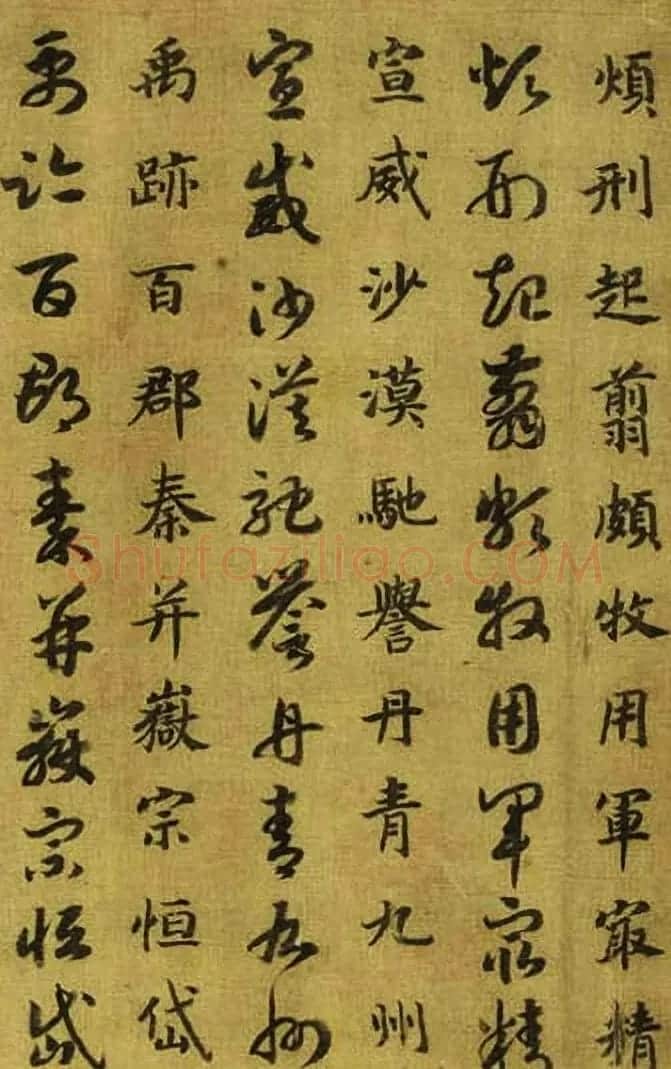 煩刑起翦頗牧用軍㝡精
煩刑起翦頗牧用軍㝡精
宣威沙漠馳譽丹青九州
宣威沙漠馳譽丹青九州
禹跡百郡秦并嶽宗恒岱
禹跡百郡秦并嶽宗恒岱
Shufaziliao.COM